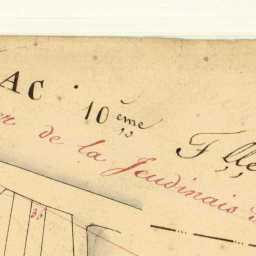 AC . 10ème Flle
de la Jeudinais
35